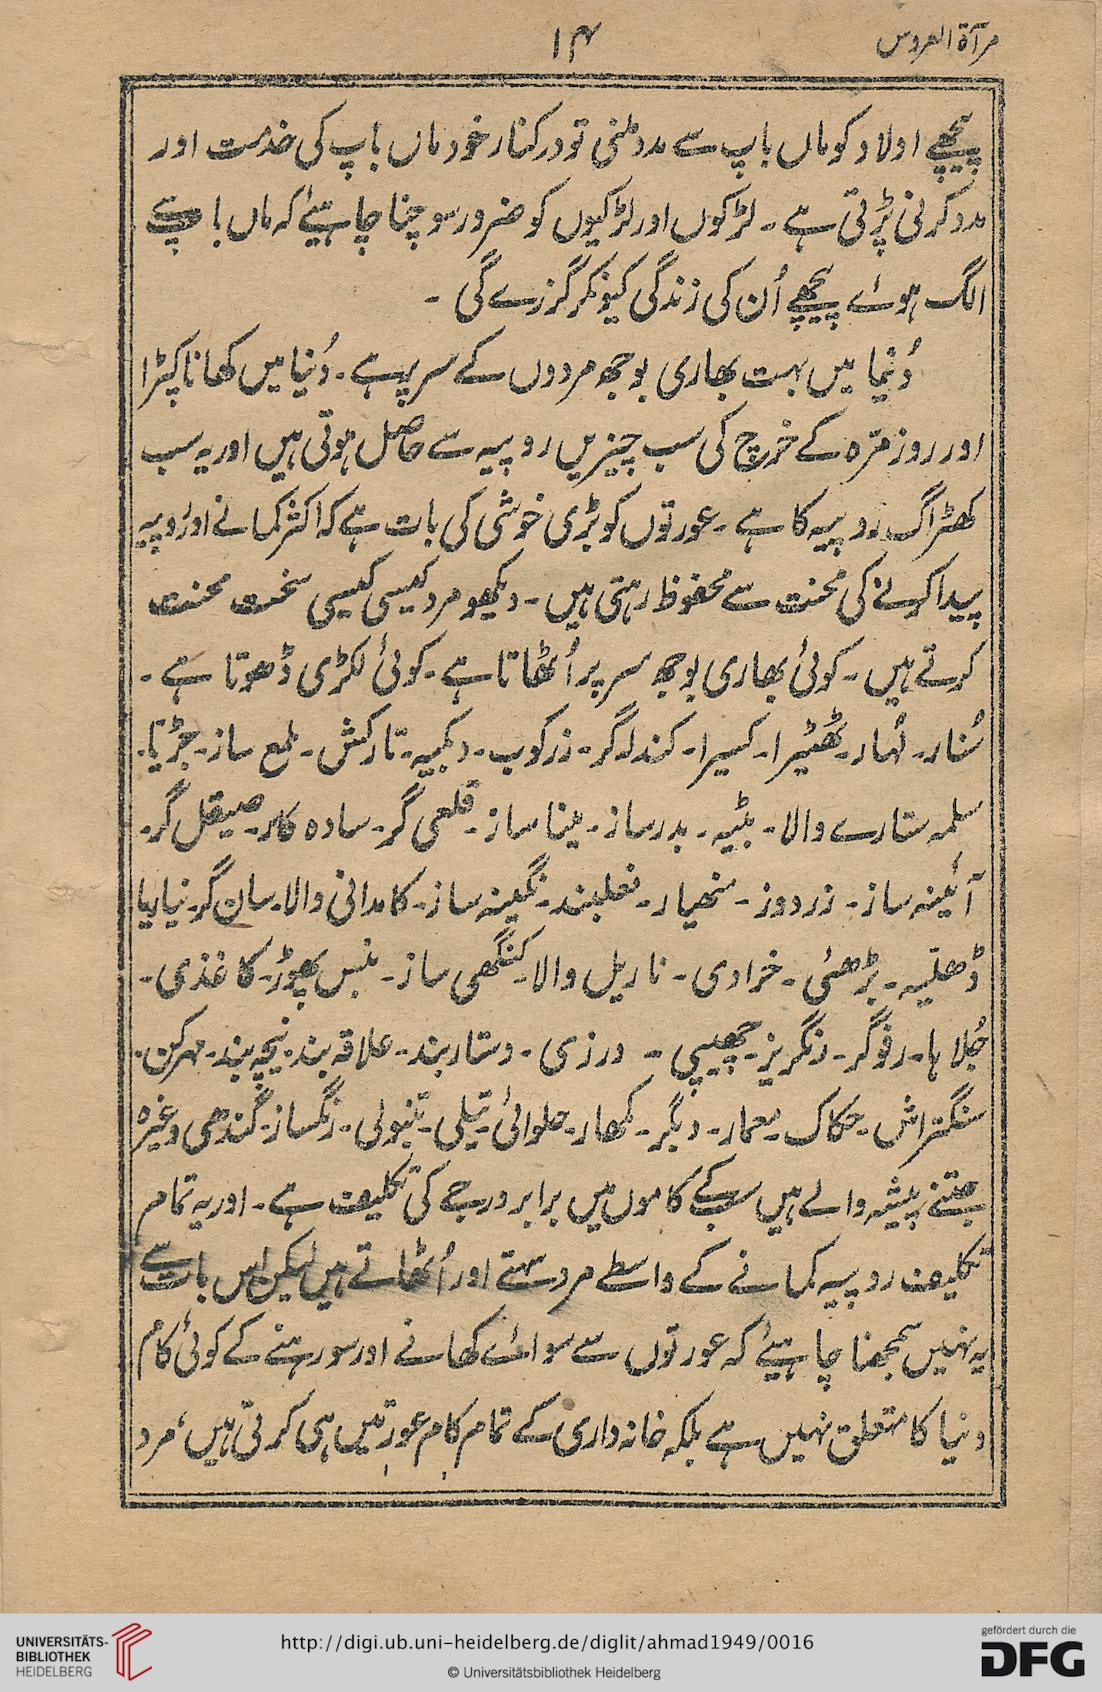 مرآۃ العروس
۱۴
پیچھے اولاد کو ماں باپ سے مدد ملنی تو درکنار خود ماں باپ کی خدمت اور
مدد کرنی پڑتی ہے۔ لڑکوں اور لڑکیوں کو ضرور سوچنا چاہیئے کہ ماں باپ سے
الگ ہوئے پیچھے اُن کی زندگی کیونکر گزرے گی ۔
دُنیا میں بہت بھاری بوجھ مردوں کے سر پر ہے۔ دُنیا میں کھانا کپڑا
اور روزمرّہ کے خرچ کی سب چیزیں روپیہ سے حاصل ہوتی ہیں اور یہ سب
کھڑاگ روپیہ کا ہے۔ عورتوں کو بڑی خوشی کی بات ہے کہ اکثر کمانے اور روپیہ
پیدا کرنے کی محنت سے محفوظ رہتی ہیں ۔ دیکھو مرد کیسی کیسی سخت محنت
کرتے ہیں ۔ کوئی بھاری بوجھ سر پر اُٹھاتا ہے۔ کوئی لکڑی ڈھوتا ہے ۔
سُنار۔ لُہار۔ ٹھٹیرا۔ کسیرا۔ کندلہ گر۔ زرکوب۔ دبکیہ۔ تارکش۔ ملمع ساز۔ جڑیا۔
سلمہ ستارے والا۔ بٹیہ۔ بدرساز۔ مینا ساز۔ قلعی گر۔ سادہ کار۔ صیقل گر۔
آئینہ ساز۔ زردوز۔ منھیار۔ نعلبند۔ نگینہ ساز۔ کامدانی والا۔ سان گر۔ نیاریا
ڈھلیہ۔ بڑھئی۔ خرادی۔ ناریل والا۔ کنگھی ساز۔ بنس پھوڑ۔ کاغذی۔
جُلاہا۔ رفوگر۔ رنگریز۔ چھیپی ۔ درزی۔ دستار بند۔ علاقہ بند۔ نیچہ بند۔ مہرکن۔
سنگتراش۔ حکاک۔ معمار۔ دبگر۔ کمھار۔ حلوائی۔ تیلی۔ تنبولی۔ رنگساز۔ گندھی وغیرہ
جتنے پیشہ والے ہیں سب کے کاموں میں برابر درجے کی تکلیف ہے۔ اور یہ تمام
تکلیف روپیہ کمانے کے واسطے مرد سہتے اور اُٹھاتے ہیں لیکن اس بات سے
یہ نہیں سمجھنا چاہیئے کہ عورتوں سے سوائے کھانے اور سو رہنے کے کوئی کام
دنیا کا متعلق نہیں ہے بلکہ خانہ داری کے تمام کام عورتیں ہی کرتی ہیں، مرد
UNIVERSITÄTS-
BIBLIOTHEK
HEIDELBERG
http://digi.ub.uni-heidelberg.de/diglit/ahmad1949/0016
© Universitätsbibliothek Heidelberg
gefördert durch die
DFG